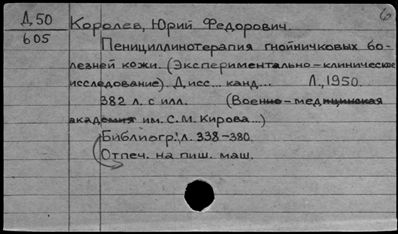 Д.50
605
б
Королев, Юрий Федорович.
Пенициллинотерапия гнойничковых бо-
лезней кожи. (Экспериментально-клиническое
исследование). Дисс... канд... Л., 1950.
382 л. с илл. (Военно-медицинская
академия им. С.М. Кирова...)
Библиогр: л. 338-380.
Отпеч. на пиш. маш.